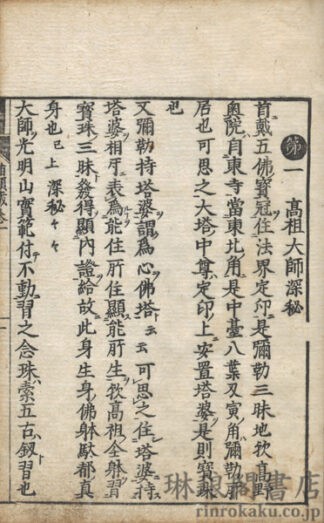 第一 高祖大師深秘
首戴五佛寶冠住法界定印是彌勒三昧地欤高野
奥院自東寺當東北角是中臺八葉又寅角彌勒
居也可思之大塔中尊定印上安置塔婆是則寶珠
也
又彌勒持塔婆謂為心佛塔云云可思之住塔婆持
塔婆相牙表為能住所住顯能所生欤高祖全躰習
寶珠三昧發得顯内證給故此身生身佛躰献都真
身也已上 深秘々々
大師光明山實範付不動習之念珠索五古釼習也
琳琅閣書店
rinrokaku.co.jp